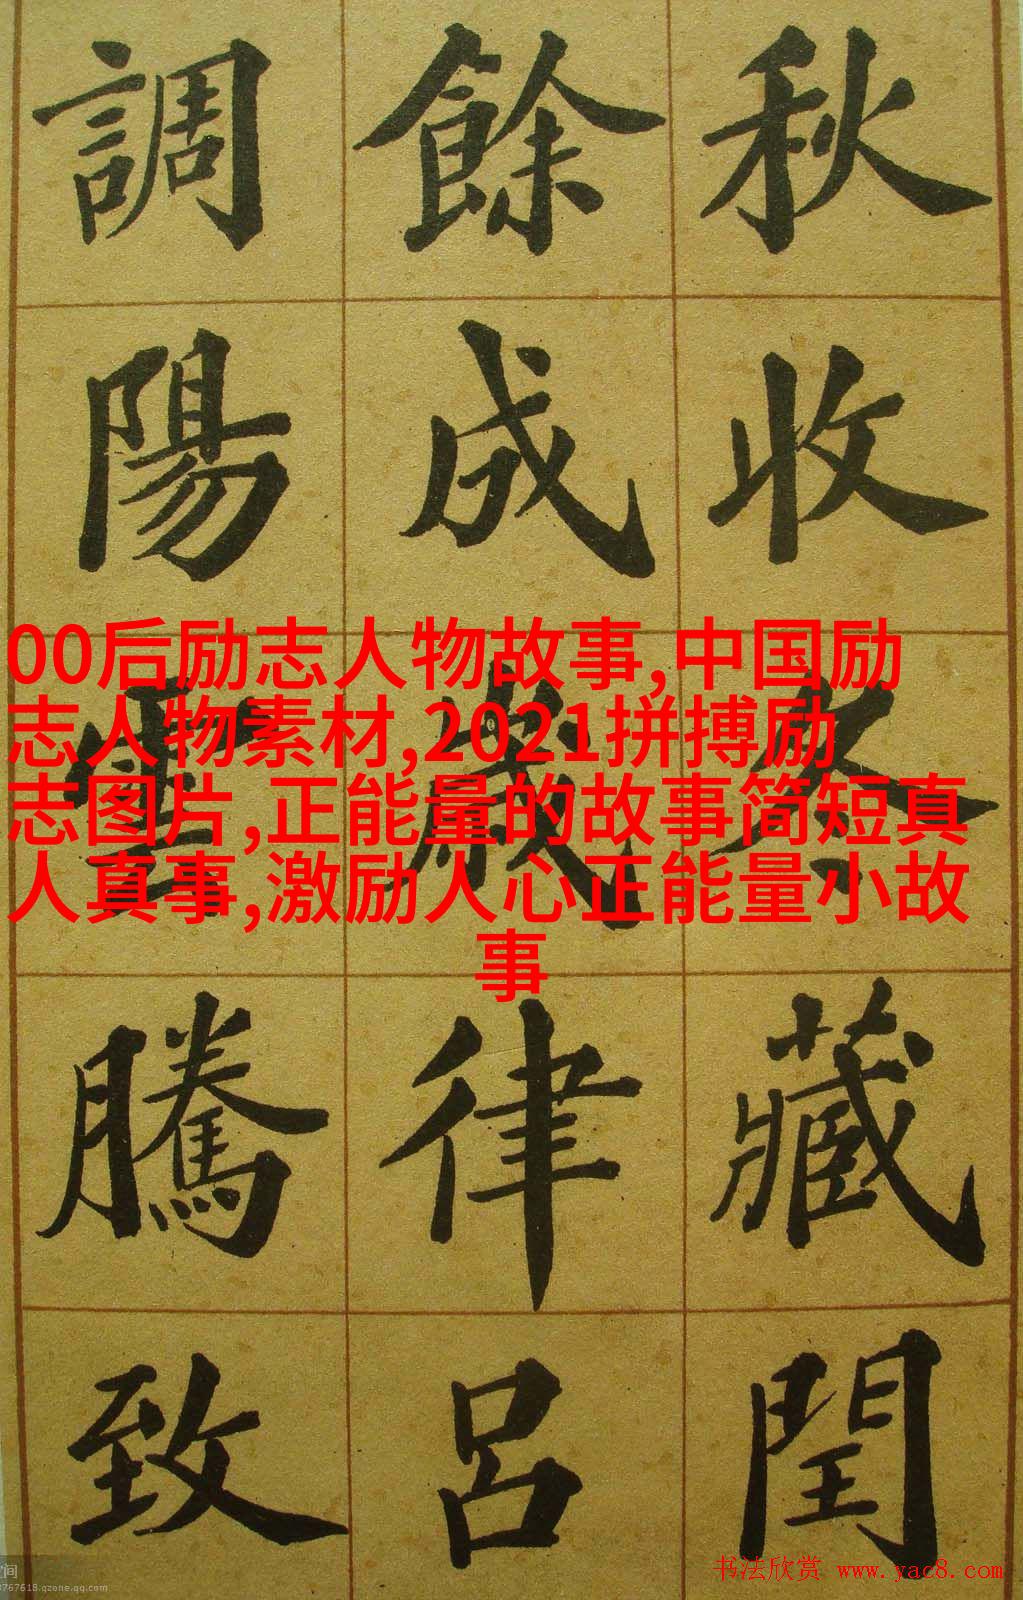 秋收冬藏閏
餘成歲律呂
調陽雲騰致
00后励志人物故事,中国励
志人物素材,2021拼搏励
志图片,正能量的故事简短真
人真事,激励人心正能量小故
事
书法欣赏 www.yac8.com
间
767618.qzone.qq.com